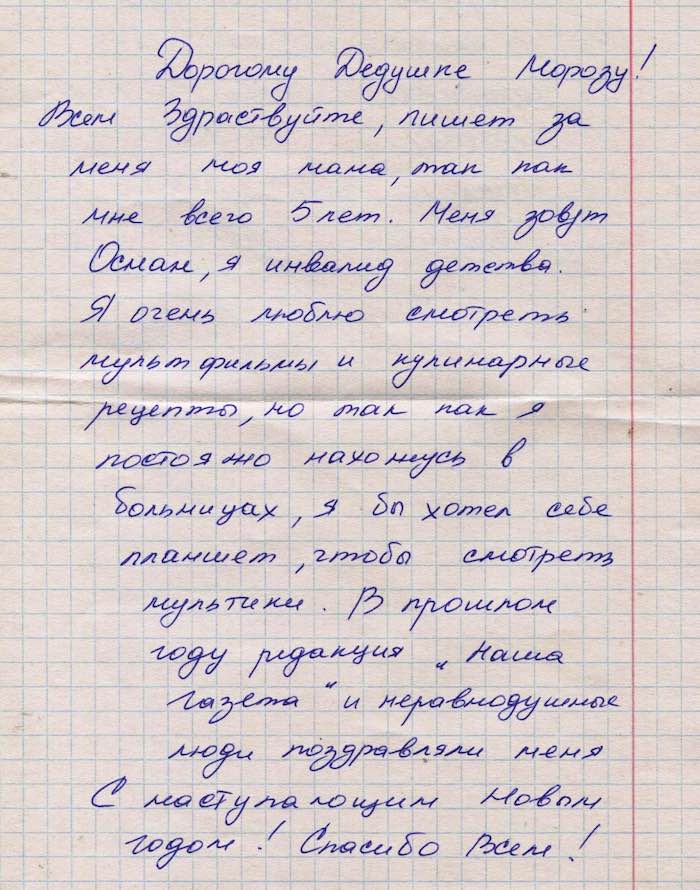 Дорогому Дедушке Морозу!
Всем Здраствуйте, пишет за
меня моя мама, так как
мне всего 5 лет. Меня зовут
Осман, я инвалид детства.
Я очень люблю смотреть
мультфильмы и кулинарные
рецепты, но так как я
постояно нахожусь в
больницах, я бы хотел себе
планшет, чтобы смотреть
мультики. В прошлом
году редакция „Наша
газета“ и неравнодушные
люди поздравляли меня
С наступающим Новым
годом! Спасибо Всем!